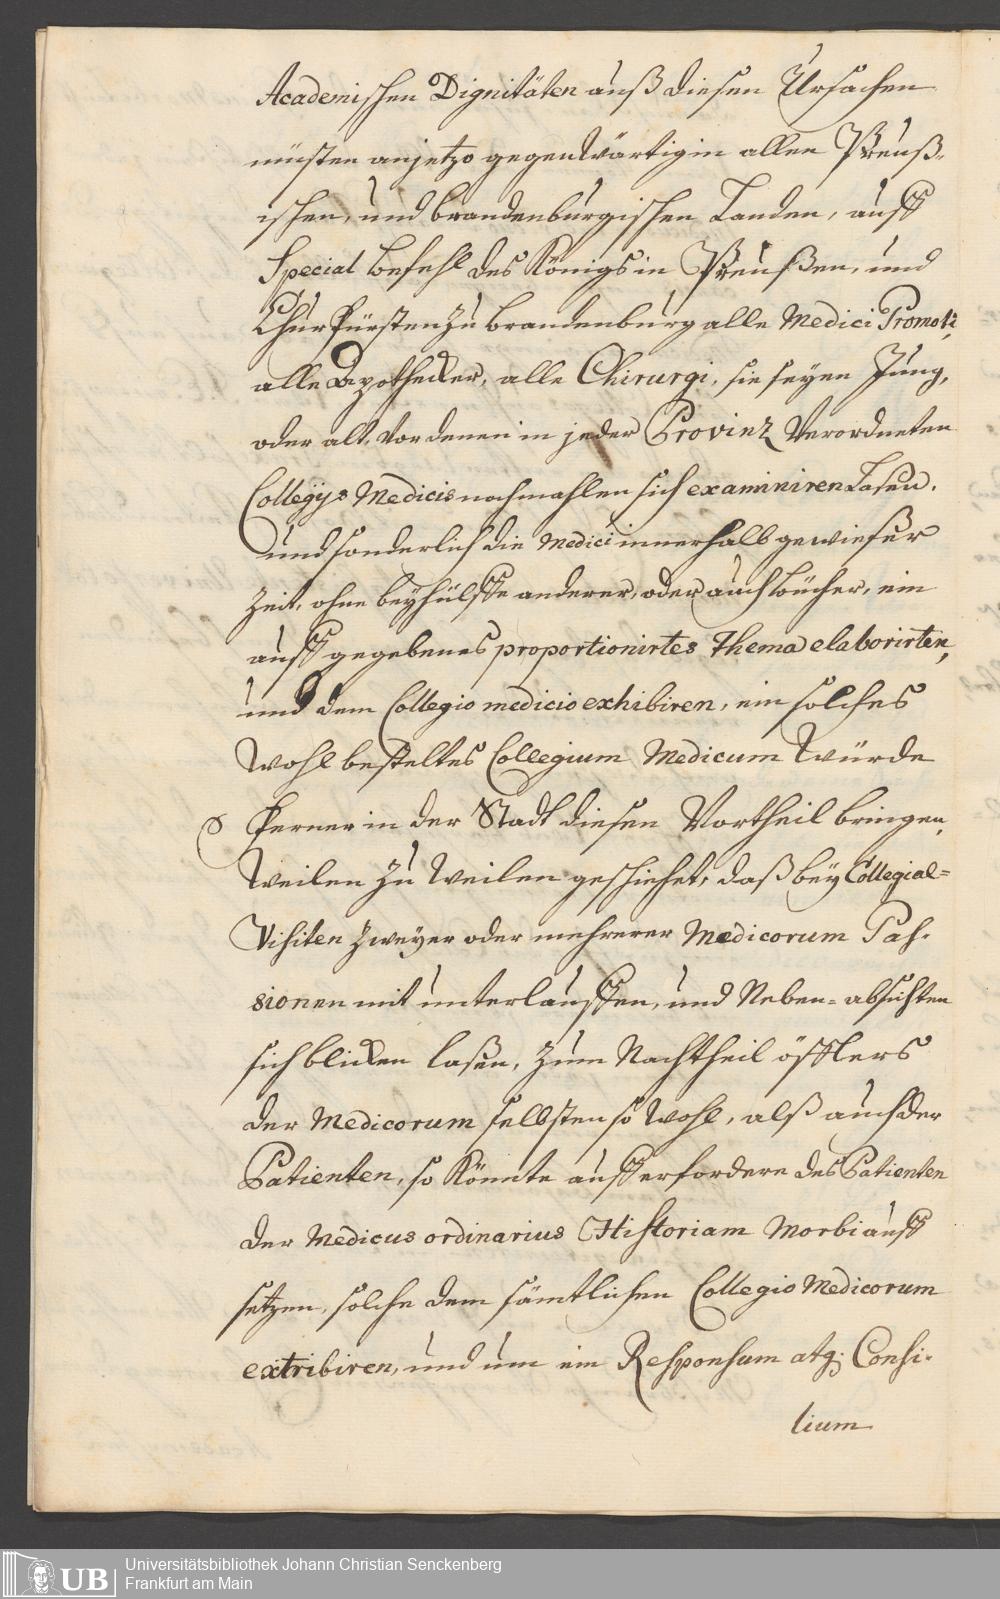 Academischen Dignitäten auß diesen Ursachen
müsten anjetzo gegenwärtig in allen Preuß-
ischen, und brandenburgischen Landen, auff
Special Befehl des Königs in Preußen, und
Churfürsten zu Brandenburg alle Medici Promoti,
alle Apothecker, alle Chirurgi, sie seyen Jung,
oder alt, vor denen in jeder Provinz Verordneten
Collegÿs Medicis nochmahlen sich examiniren Lasen.
und sonderlich die Medici innerhalb gewießer
Zeit, ohne beyhülffe anderer, oder auch Bücher, ein
auff gegebenes proportionirtes Thema elaborirten,
und dem Collegio medicio exhibiren, ein solches
wohl besteltes Collegium Medicum würde
ferner in der Stadt diesen Vortheil bringen,
weilen zu weilen geschiehet, daß bey Collegial=
Visiten zweyer oder mehrerer Medicorum Pas-
sionen mit unterlauffen, und Neben=absichten
sich blicken lasen, zum Nachtheil öffters
der Medicorum selbsten so wohl, alß auch der
Patienten, so könnte auff erfordern des Patienten
der Medicus ordinarius Historiam Morbi auff
setzen, solche dem sämtlichen Collegio Medicorum
extribiren, und um ein Responsum atq; Consi-
lium
UB
Universitätsbibliothek Johann Christian Senckenberg
Frankfurt am Main